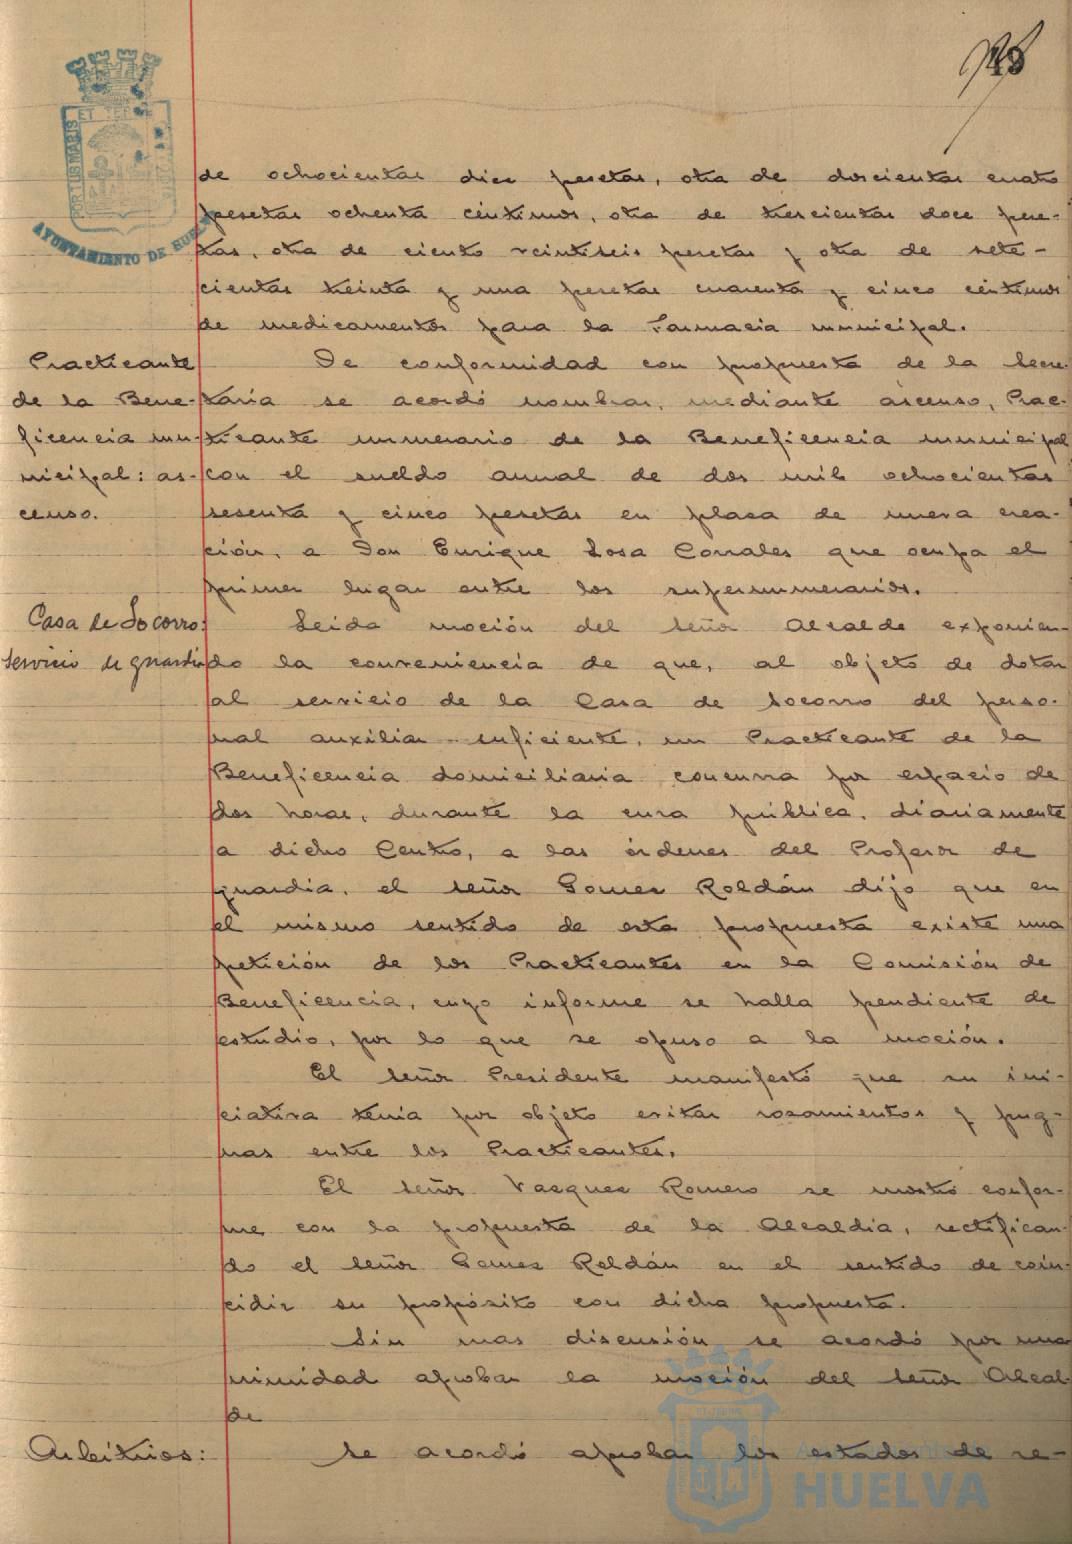 de ochocientas diez pesetas, otra de doscientas cuatro
pesetas ochenta céntimos, otra de trescientas doce pese-
tas, otra de ciento veintiseis pesetas y otra de sete-
cientas treinta y una pesetas cuarenta y cinco céntimos
de medicamentos para la Farmacia municipal.
Practicante
de la Bene-
ficencia mu-
nicipal: as-
censo.
De conformidad con propuesta de la Secre-
taria se acordó nombrar, mediante ascenso, Prac-
ticante numerario de la Beneficencia municipal
con el sueldo anual de dos mil ochocientas
sesenta y cinco pesetas en plaza de nueva crea-
ción, a Don Enrique Sosa Corrales que ocupa el
primer lugar entre los supernumerarios.
Casa de Socorro:
Servicio de guardia
Leida moción del Señor Alcalde exponien-
do la conveniencia de que, al objeto de dotar
al servicio de la Casa de Socorro del perso-
nal auxiliar suficiente, un Practicante de la
Beneficencia domiciliaria concurra por espacio de
dos horas, durante la cura pública, diariamente
a dicho Centro, a las órdenes del Profesor de
guardia, el Señor Gomez Roldán dijo que en
el mismo sentido de esta propuesta existe una
petición de los Practicantes en la Comisión de
Beneficencia, cuyo informe se halla pendiente de
estudio, por lo que se opuso a la moción.
El Señor Presidente manifestó que su ini-
ciativa tenia por objeto evitar rozamientos y pug-
nas entre los Practicantes.
El Señor Vazquez Romero se mostró confor-
me con la propuesta de la Alcaldia, rectifican-
do el Señor Gomez Roldán en el sentido de coin-
cidir su propósito con dicha propuesta.
Sin mas discusión se acordó por una-
nimidad aprobar la moción del Señor Alcal-
de
Arbitrios:
Se acordó aprobar los estados de re-
PORTUS MARIS
ET TERRE
AYUNTAMIENTO DE HUELVA
HUELVA